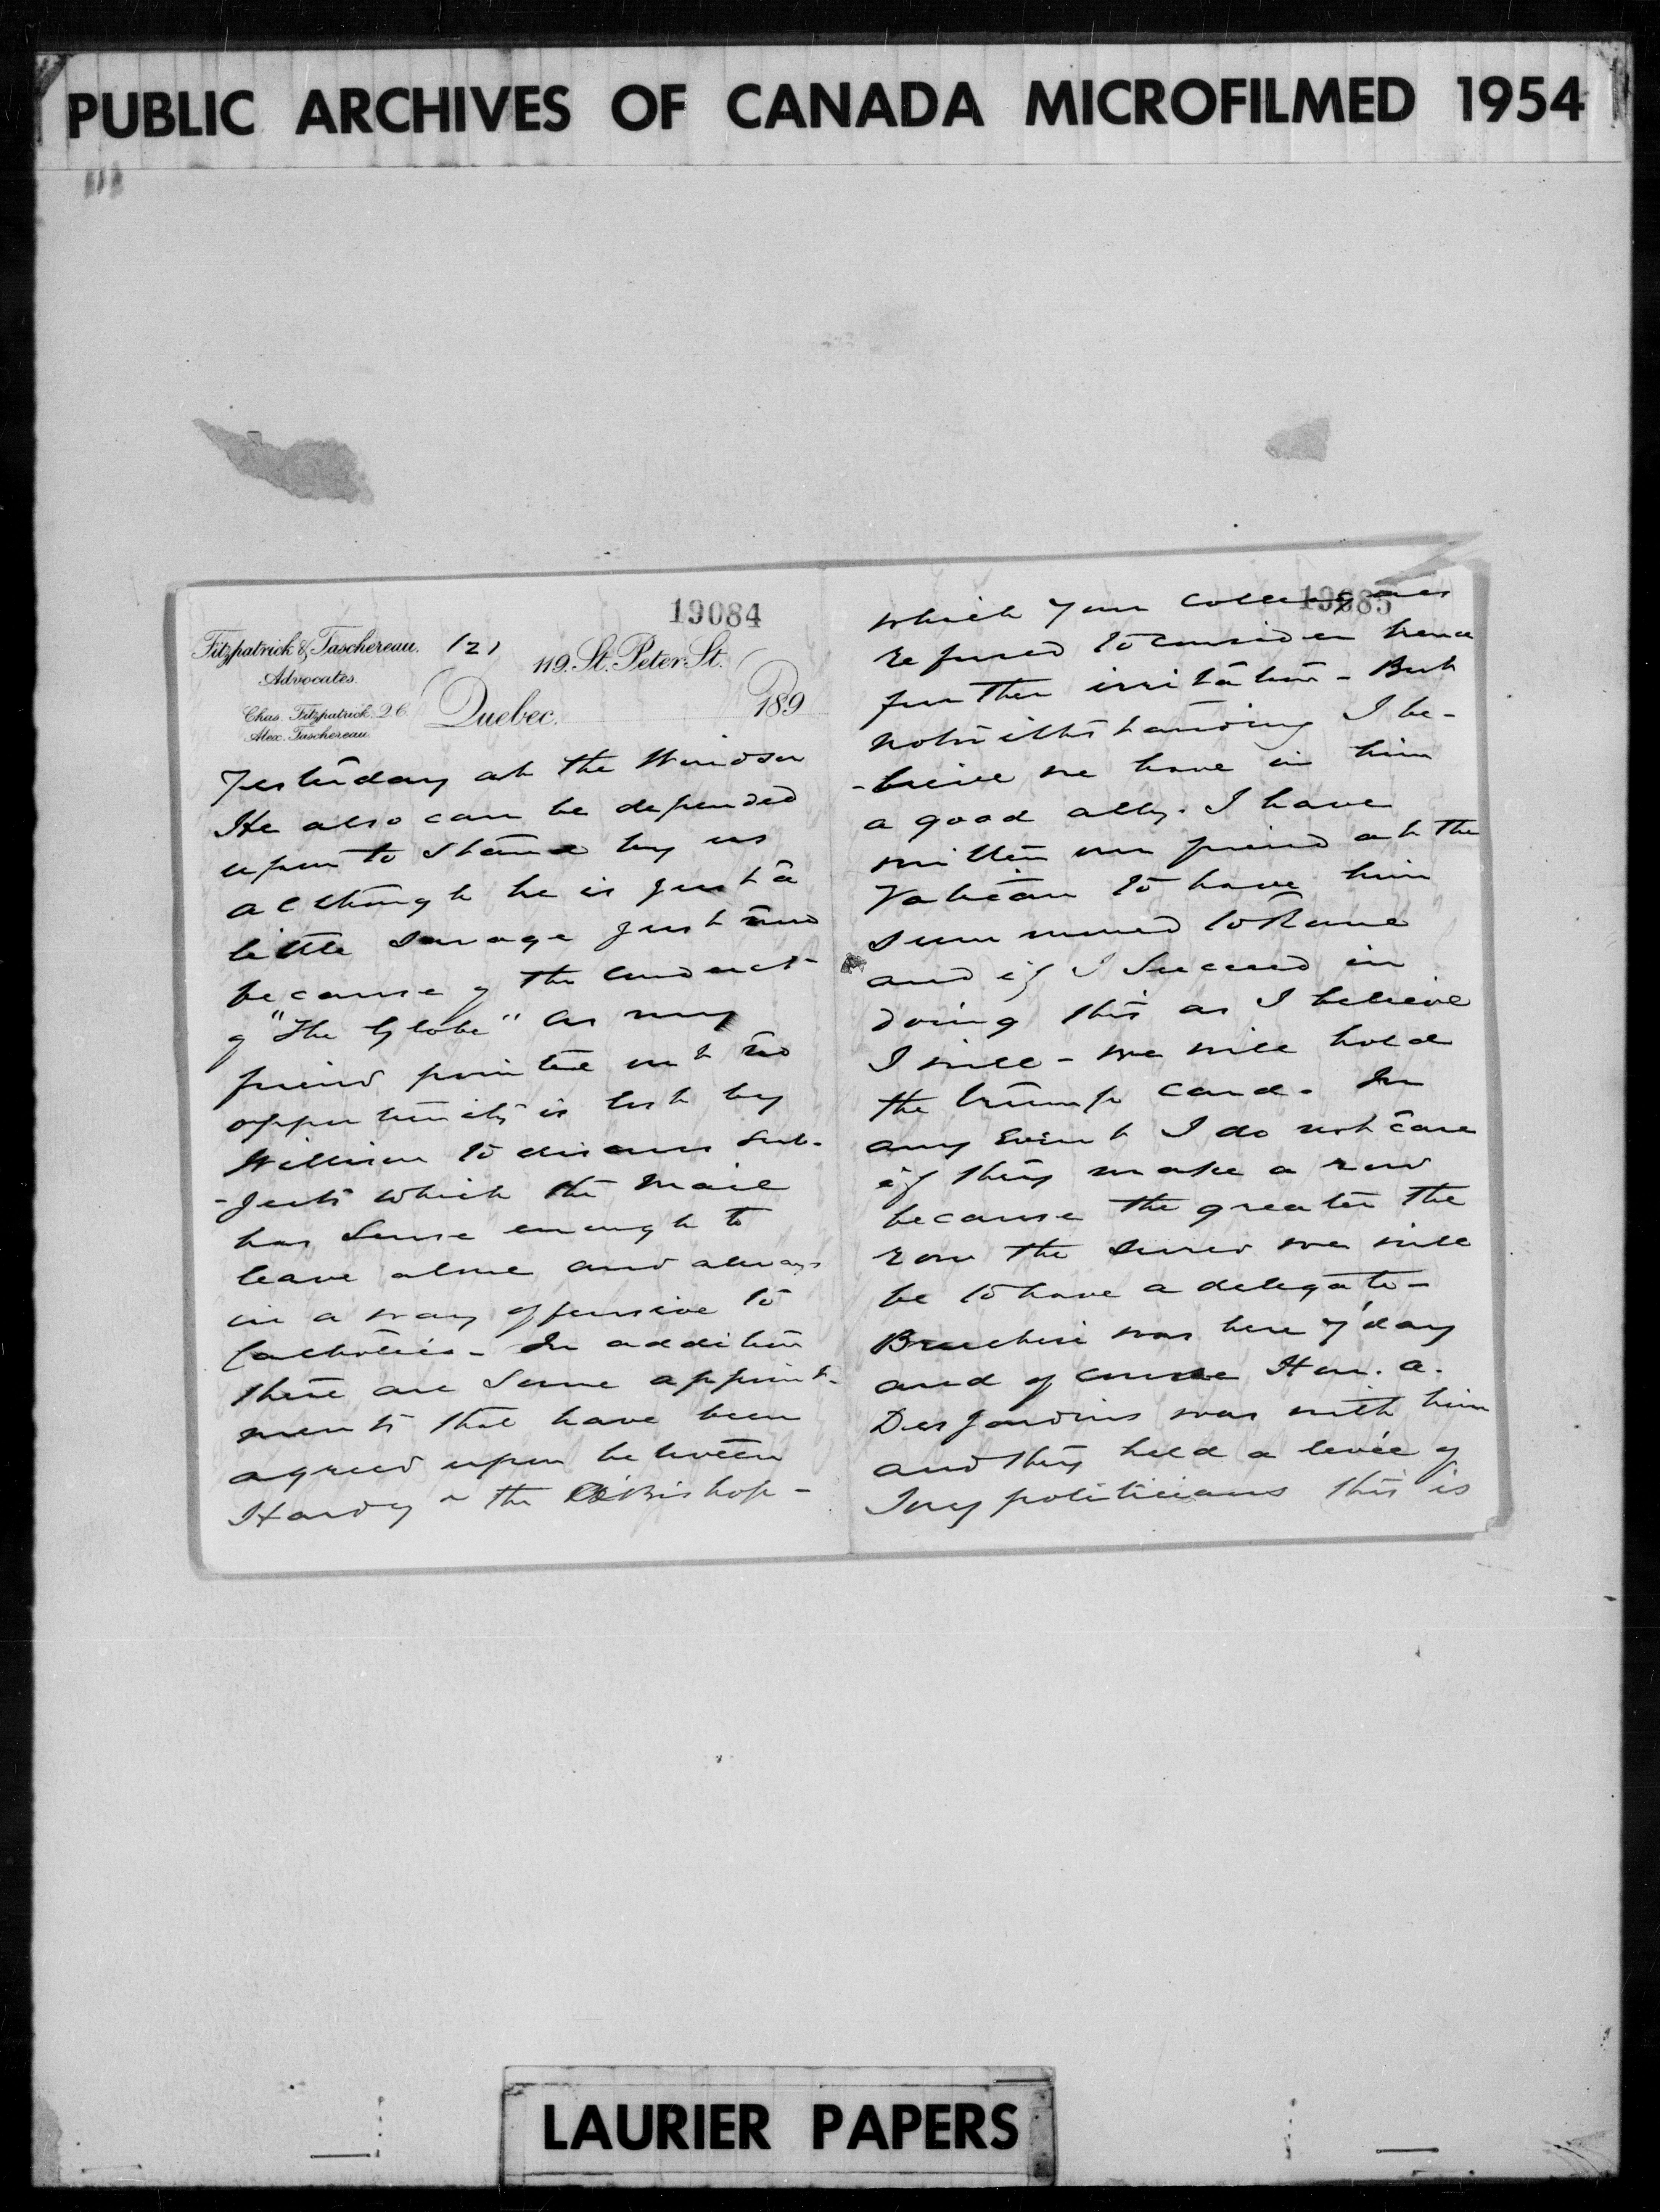 PUBLIC ARCHIVES OF CANADA MICROFILMED 1954
19084
Fitzpatrick & Taschereau. /2/
119. St. Peter St.
Advocates.
Chas. Fitzpatrick. Q.C.
Alex. Taschereau.
Quebec. 189
Yesterday at the Windsor
He also can be depended
upon to stand by us
although he is just a
little savage just now
because of the conduct
of "The Globe" as my
friend pointed out no
opportunity is lost by
Willison to discuss sub-
-jects which the Mail
has sense enough to
leave alone and always
in a way offensive to
Catholics - In addition
there are some appoint-
ments that have been
agreed upon between
Hardy & the Bishop -
19085
which your colleagues
refused to consider hence
further irritation - But
notwithstanding I be-
-lieve we have in him
a good ally. I have
written our friend at the
Vatican to have him
summoned to Rome
and if I succeed in
doing this as I believe
I will - we will hold
the trump card. In
any event I do not care
if they make a row
because the greater the
row the surer we will
be to have a delegate -
Bruchesi was here y'day
and of course Hon. A.
Desjardins was with him
and they held a levée of
Tory politicians this is
LAURIER PAPERS